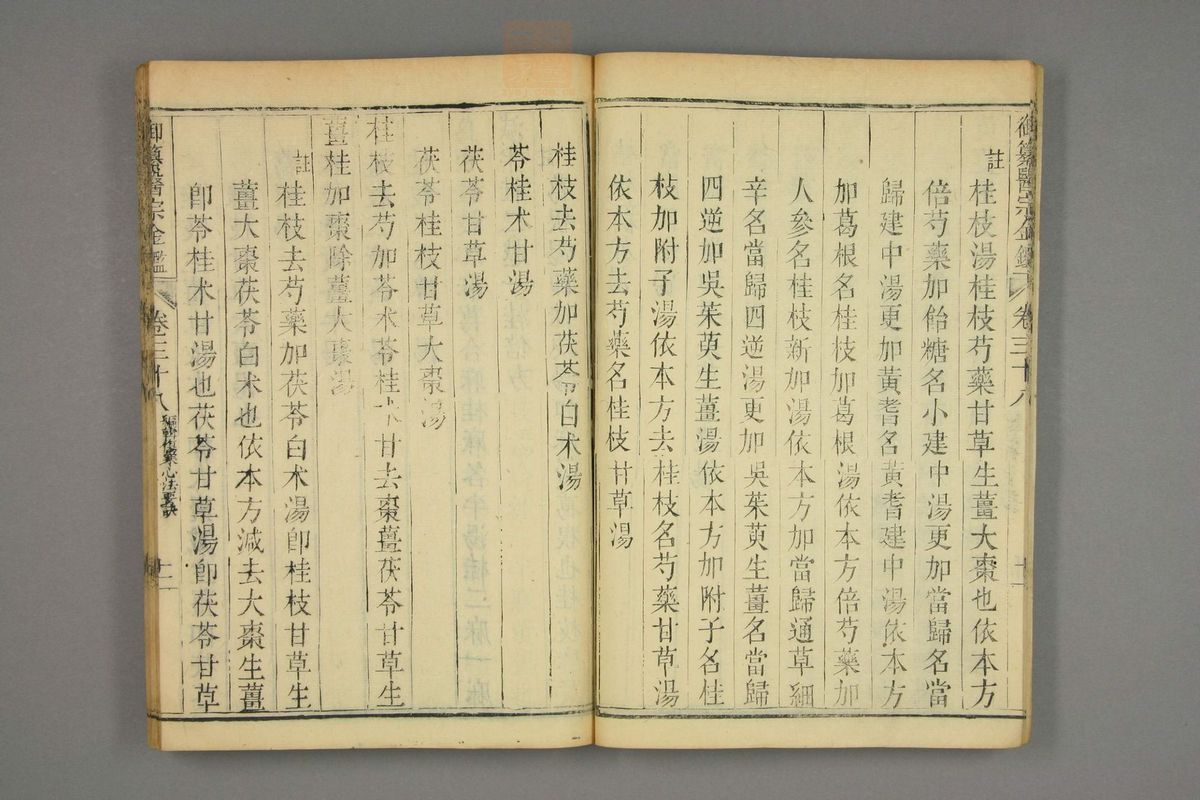 御纂醫宗金鑑 卷三十八 十一
註
桂枝湯桂枝芍藥甘草生薑大棗也依本方
倍芍藥加飴糖名小建中湯更加當歸名當
歸建中湯更加黃耆名黃耆建中湯依本方
加葛根名桂枝加葛根湯依本方倍芍藥加
人參名桂枝新加湯依本方加當歸通草細
辛名當歸四逆湯更加吳茱萸生薑名當歸
四逆加吳茱萸生薑湯依本方加附子名桂
枝加附子湯依本方去桂枝名芍藥甘草湯
依本方去芍藥名桂枝甘草湯
桂枝去芍藥加茯苓白朮湯
苓桂朮甘湯
茯苓甘草湯
茯苓桂枝甘草大棗湯
桂枝去芍加苓朮苓桂朮甘去棗薑茯苓甘草生
薑桂加棗除薑大棗湯
註
桂枝去芍藥加茯苓白朮湯卽桂枝甘草生
薑大棗茯苓白朮也依本方減去大棗生薑
卽苓桂朮甘湯也茯苓甘草湯卽茯苓甘草
御纂醫宗金鑑 卷三十八 心法要訣 十一